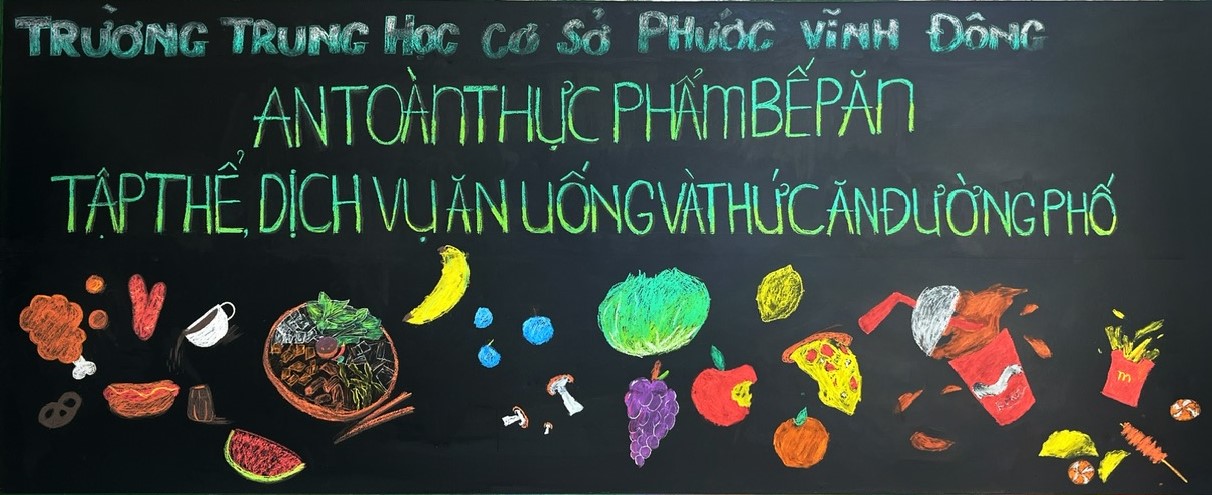 TRƯỜNG TRUNG HỌC CƠ SỞ PHƯỚC VĨNH ĐÔNG
AN TOÀN THỰC PHẨM BẾP ĂN
TẬP THỂ, DỊCH VỤ ĂN UỐNG VÀ THỨC ĂN ĐƯỜNG PHỐ
m